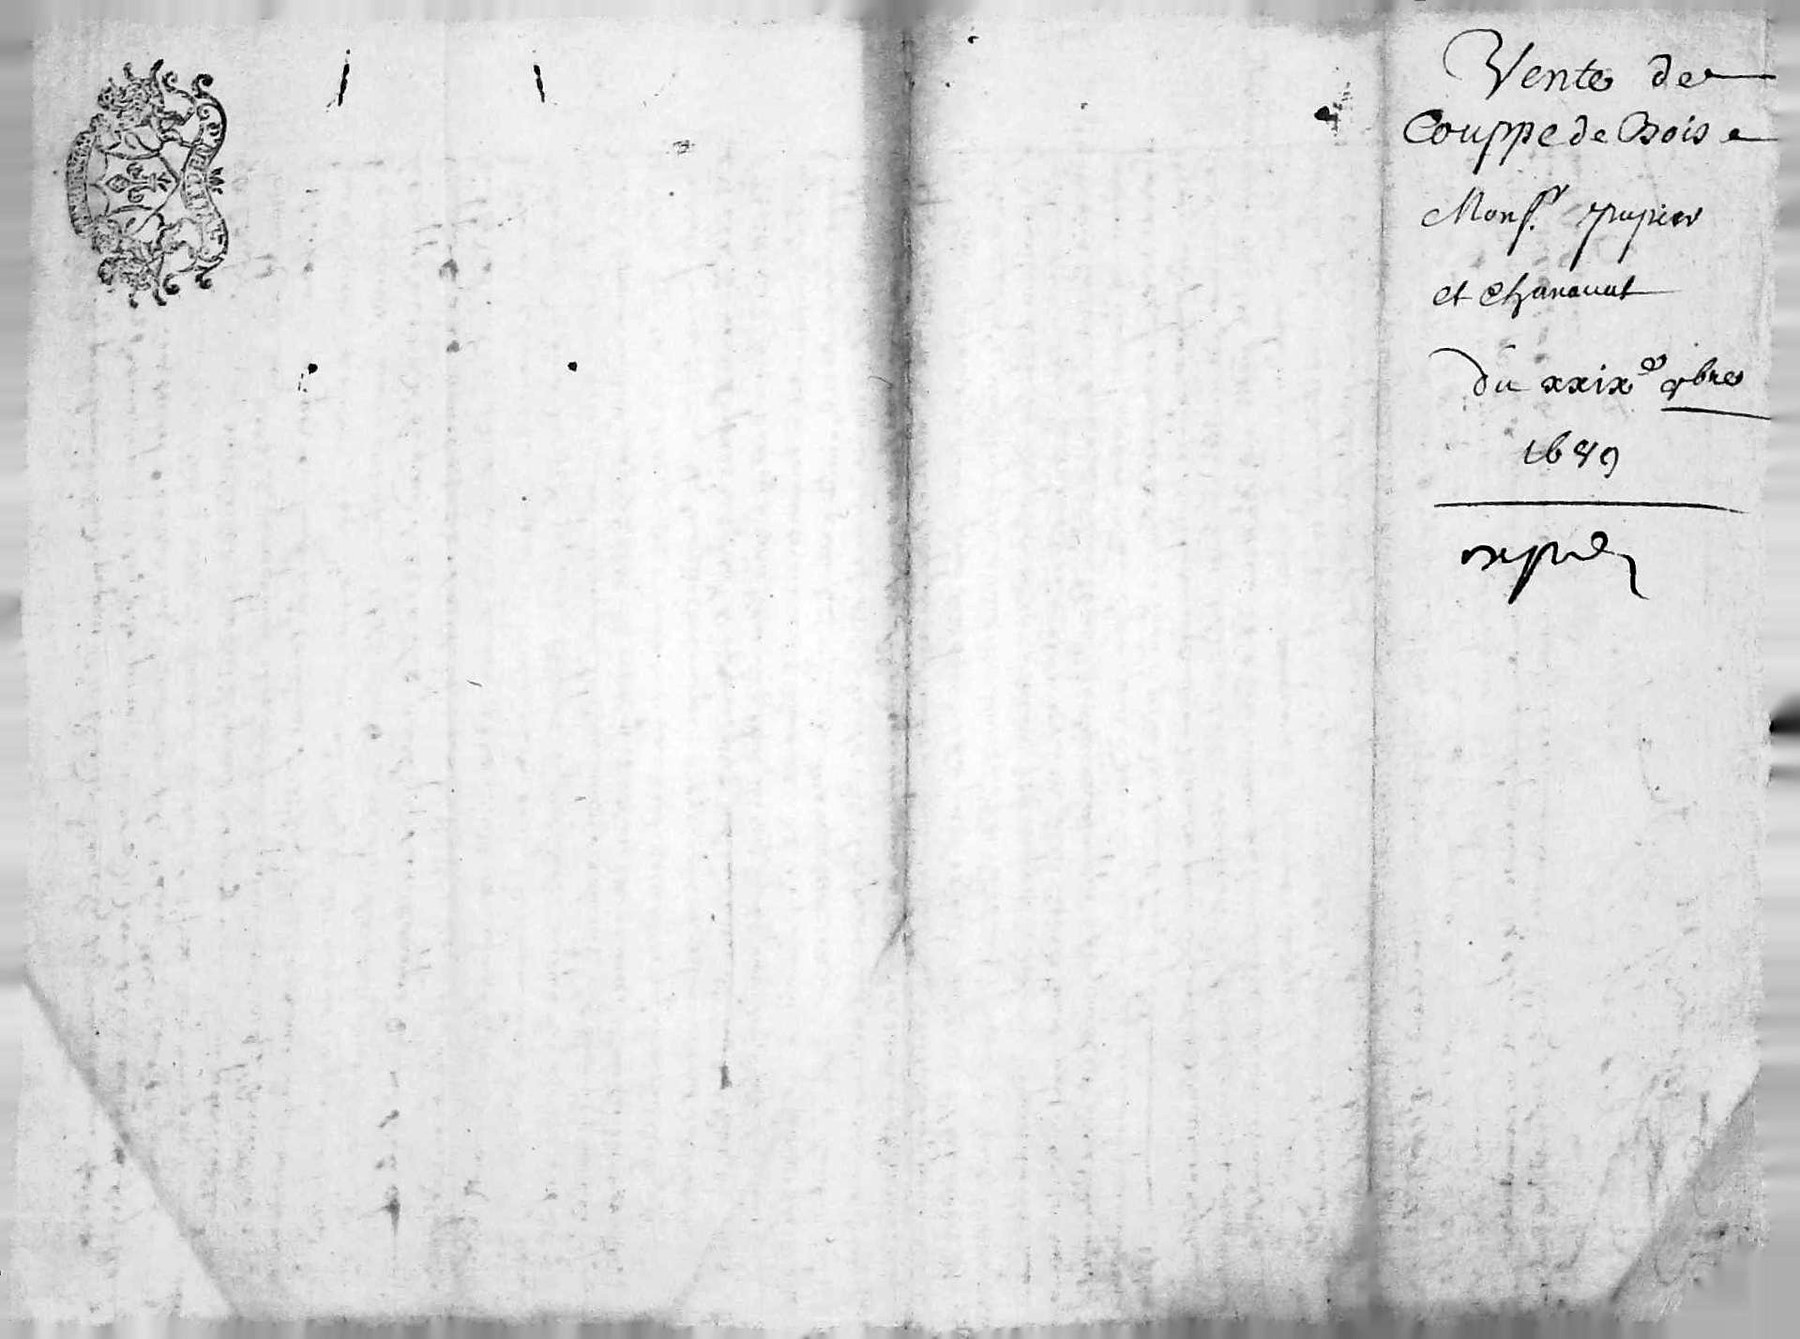 Vente de
Couppe de Bois
Monsr. papier
et Chanauat
du xxixe 9bre
1689